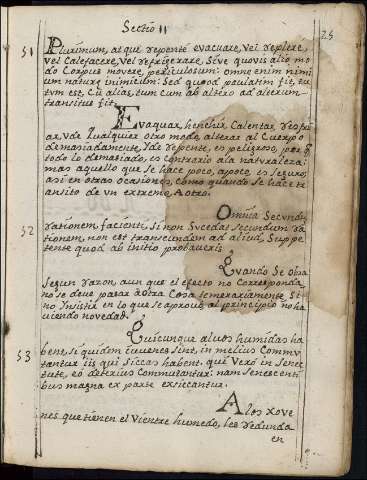 Sectio II
25
51
Plurimum, atque repente evacuare, vel replere,
vel Calefacere, vel refrigerare, Sive quovis alio mo
do Corpus movere, periculosum: omne enim nimi
um naturæ inimicum: Sed quod paulatim fit, tu
tum est, Cum alias, tum cum ab altero ad alterum
transitus fit.
Evaquar, henchir, Calentar, resfri
ar, vde qualquier otro modo, alterar al Cuerpo
demasiadamente, y de repente, es peligroso, porq
todo lo demasiado, es contrario ala naturaleza:
mas aquello que se hace poco, apoco, es seguro,
asi en otras ocasiones, como quando se hace tr
ansito de un extremo, Aotro.
52
Omnia Secundu
rationem, facienti, Si non Succedat Secundum ra
tionem, non est transeundum ad aliud, Suppe
tente quod ab initio probaveris.
Quando Se obra
segun razon, aun que el efecto no Corresponda,
no se deve pasar áotra Cosa temerariamente, Si
no Ynsistir en lo que se aprovó, al principio no ha
viendo novedad.
53
Quicunque alvos humidas ha
bent, Si quidem iuvenes Sint, in melius Commu
tantur iis qui Siccas habent, qui Vero in Senec
tute, eo deterius Commutantur: nam Senescenti
bus magna ex parte exsiccantur.
A los Xove
nes que tienen el Vientre humedo, les redunda
en